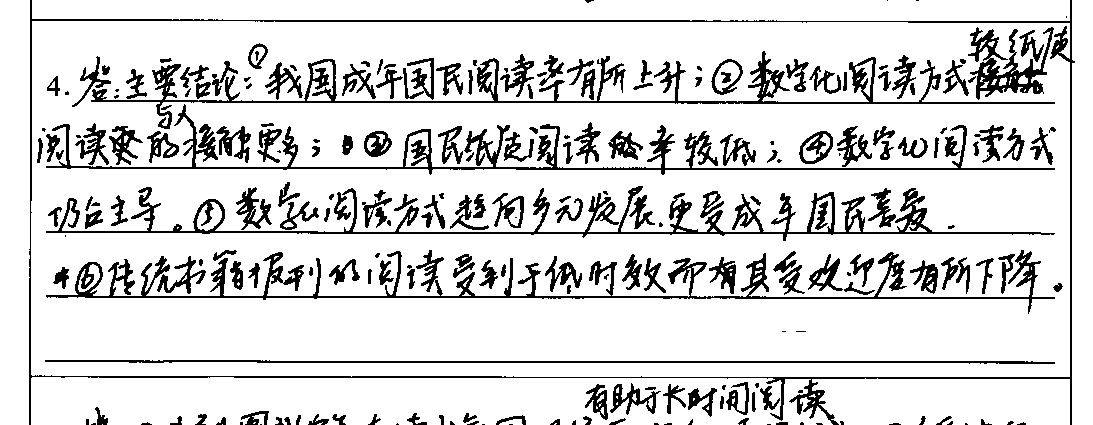 4. 答:主要结论:①我国成年国民阅读率有所上升;②数字化阅读方式较纸质
阅读与人的接触更多;③国民纸质阅读的率较低;④数字化阅读方式
仍占主导。⑤数字化阅读方式趋向多元发展,更受成年国民喜爱。
⑥传统书籍报刊的阅读受到于低时效而有其受欢迎度有所下降。
有助于长时间阅读